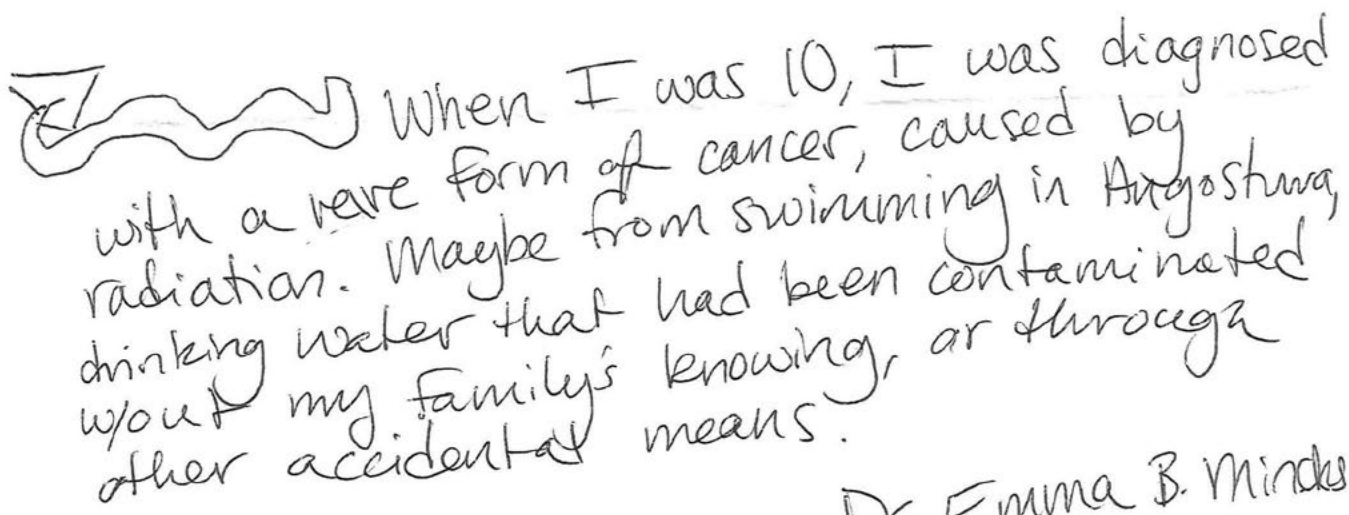 When I was 10, I was diagnosed
with a rare form of cancer, caused by
radiation. Maybe from swimming in Angostura,
drinking water that had been contaminated
w/out my family's knowing, or through
other accidental means.
Dr. Emma B. Mincks